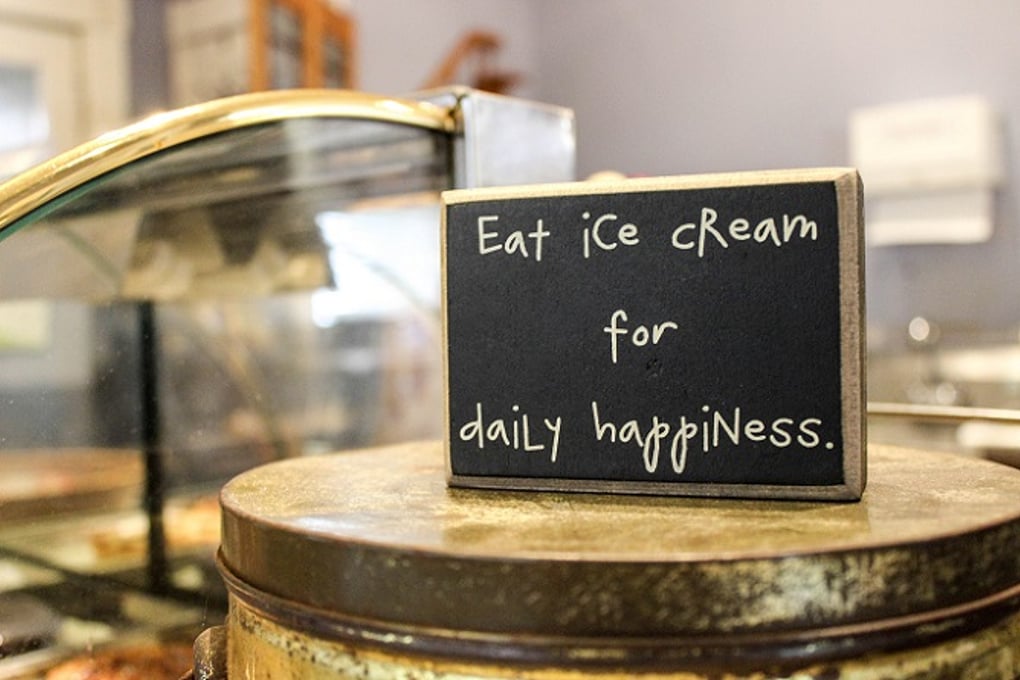 Eat ice cReam
for
daiLy happiNess.